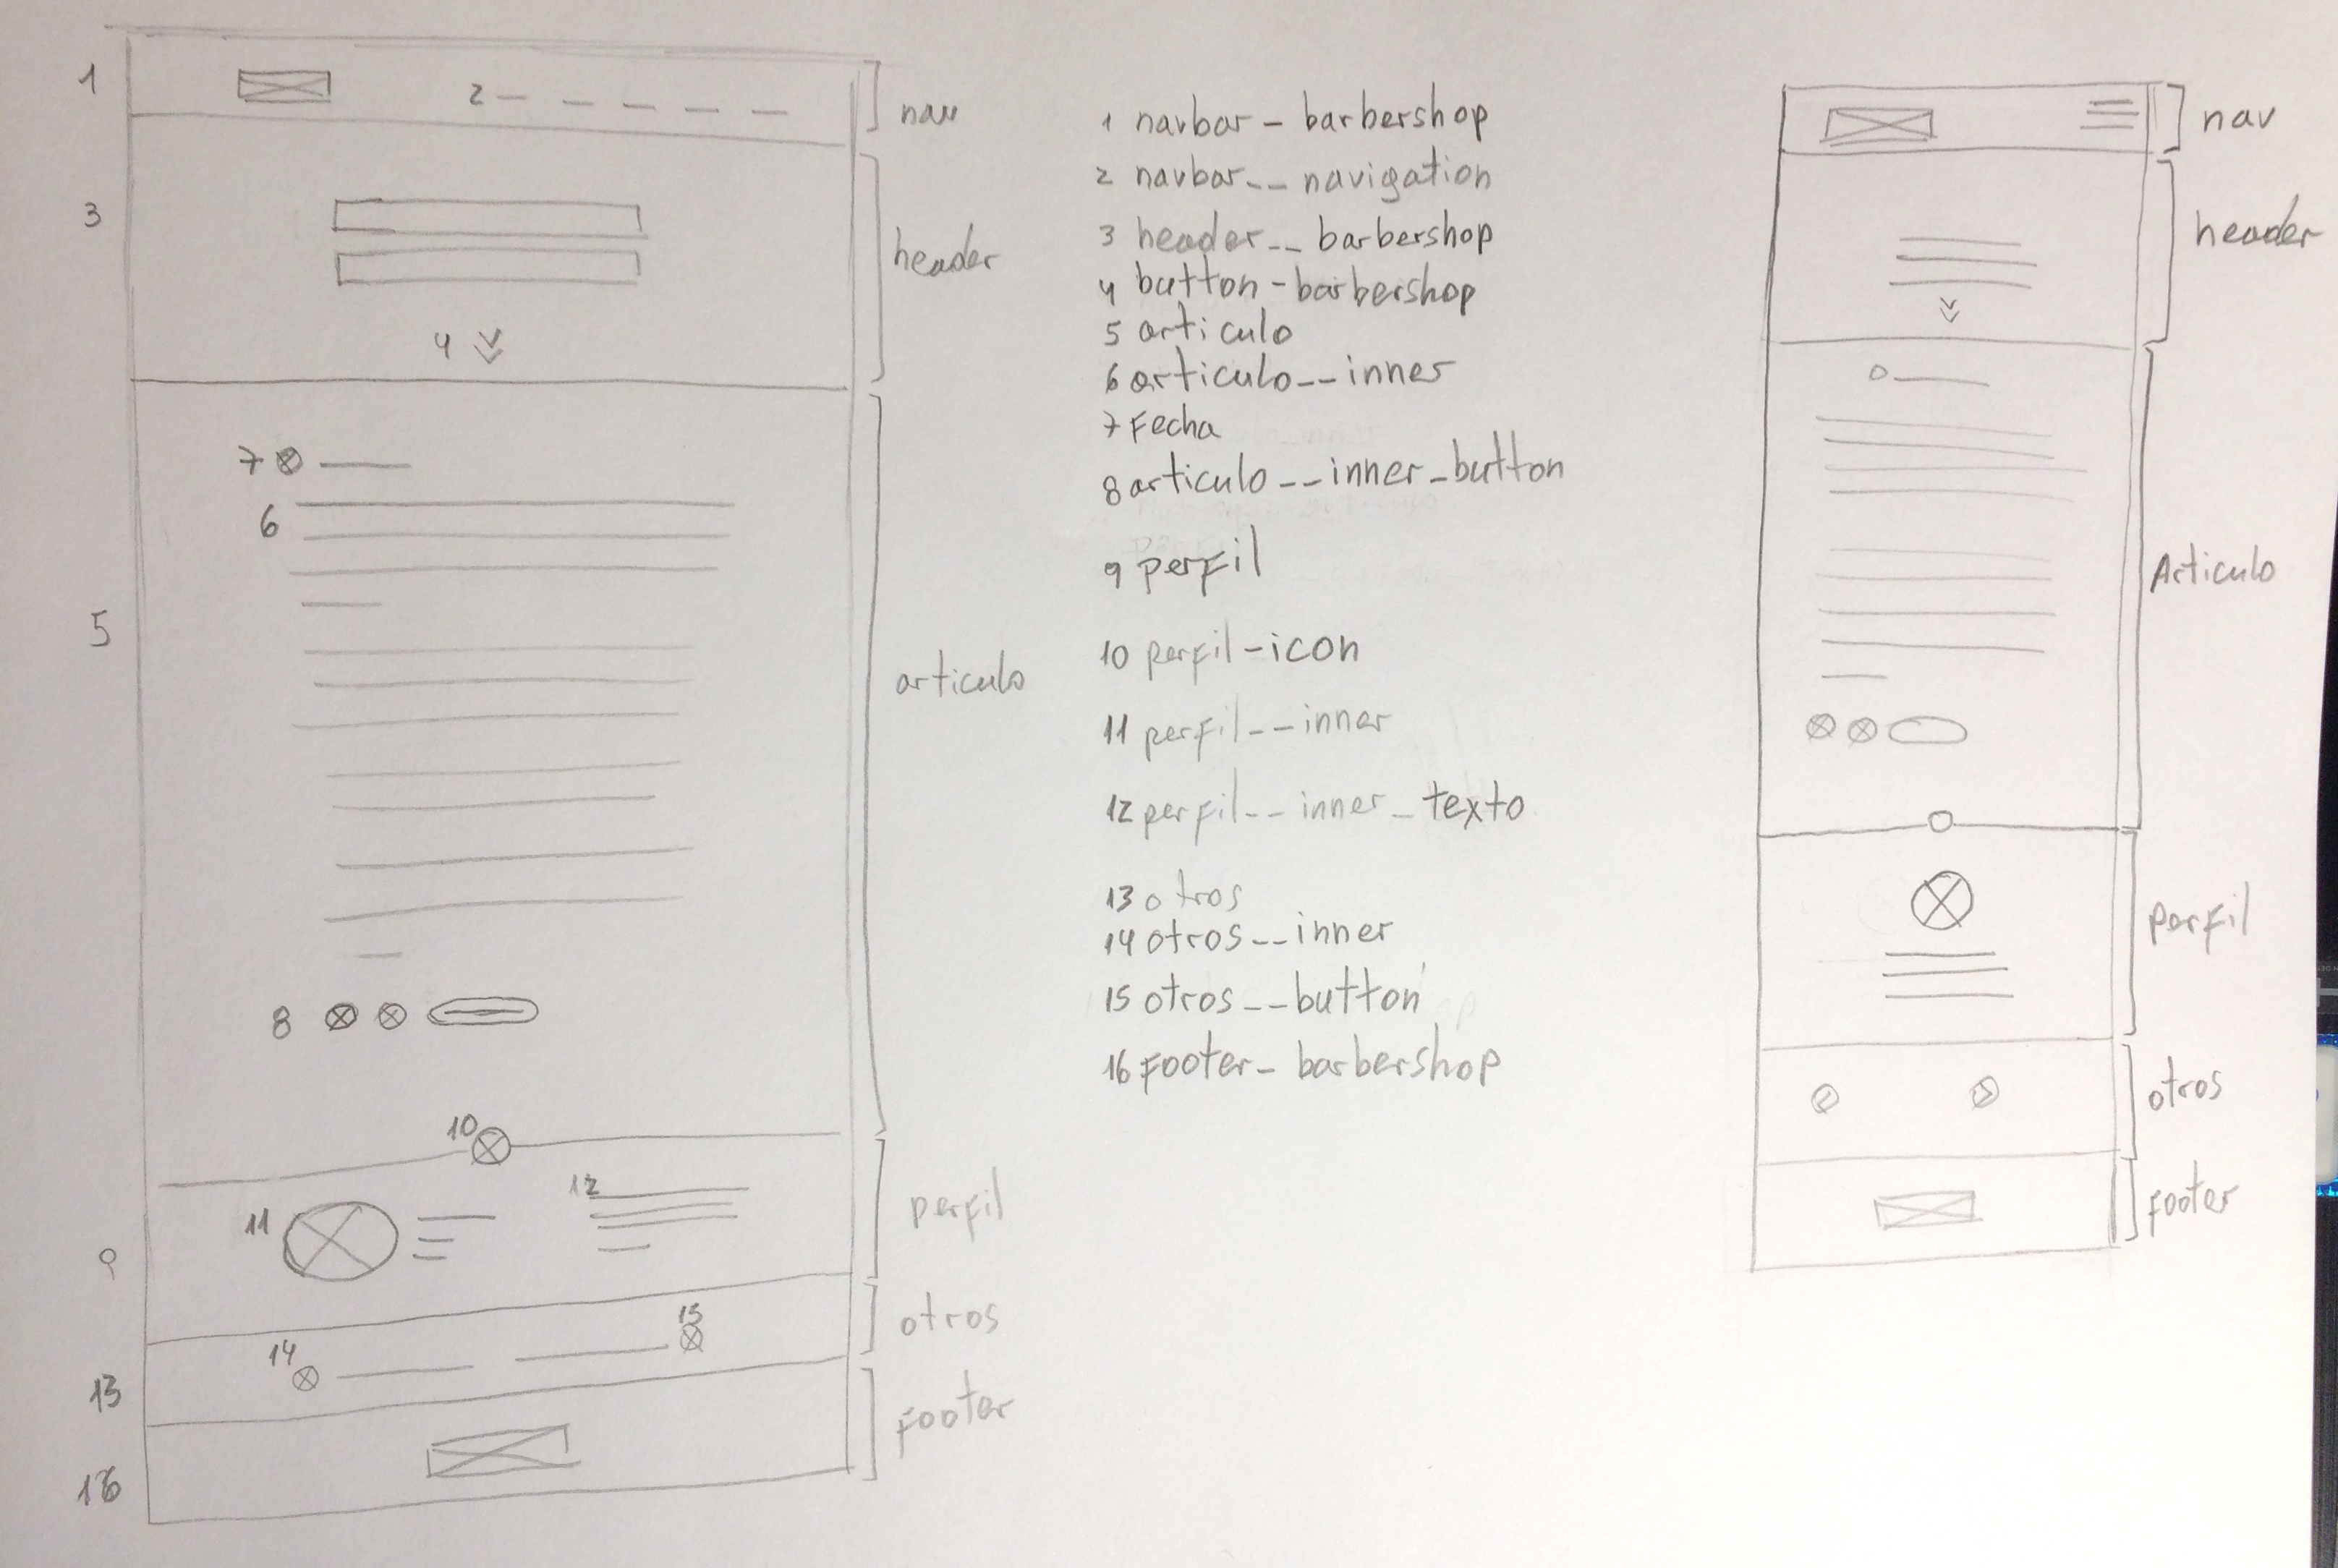 1
2
nav
3
header
4
7
6
5
articulo
8
10
11
12
perfil
9
14
15
otros
13
footer
16
1 navbar - barbershop
2 navbar -- navigation
3 header -- barbershop
4 button - barbershop
5 articulo
6 articulo -- inner
7 Fecha
8 articulo -- inner - button
9 perfil
10 perfil - icon
11 perfil -- inner
12 perfil -- inner - texto
13 otros
14 otros -- inner
15 otros -- button
16 Footer - barbershop
nav
header
Articulo
perfil
otros
footer